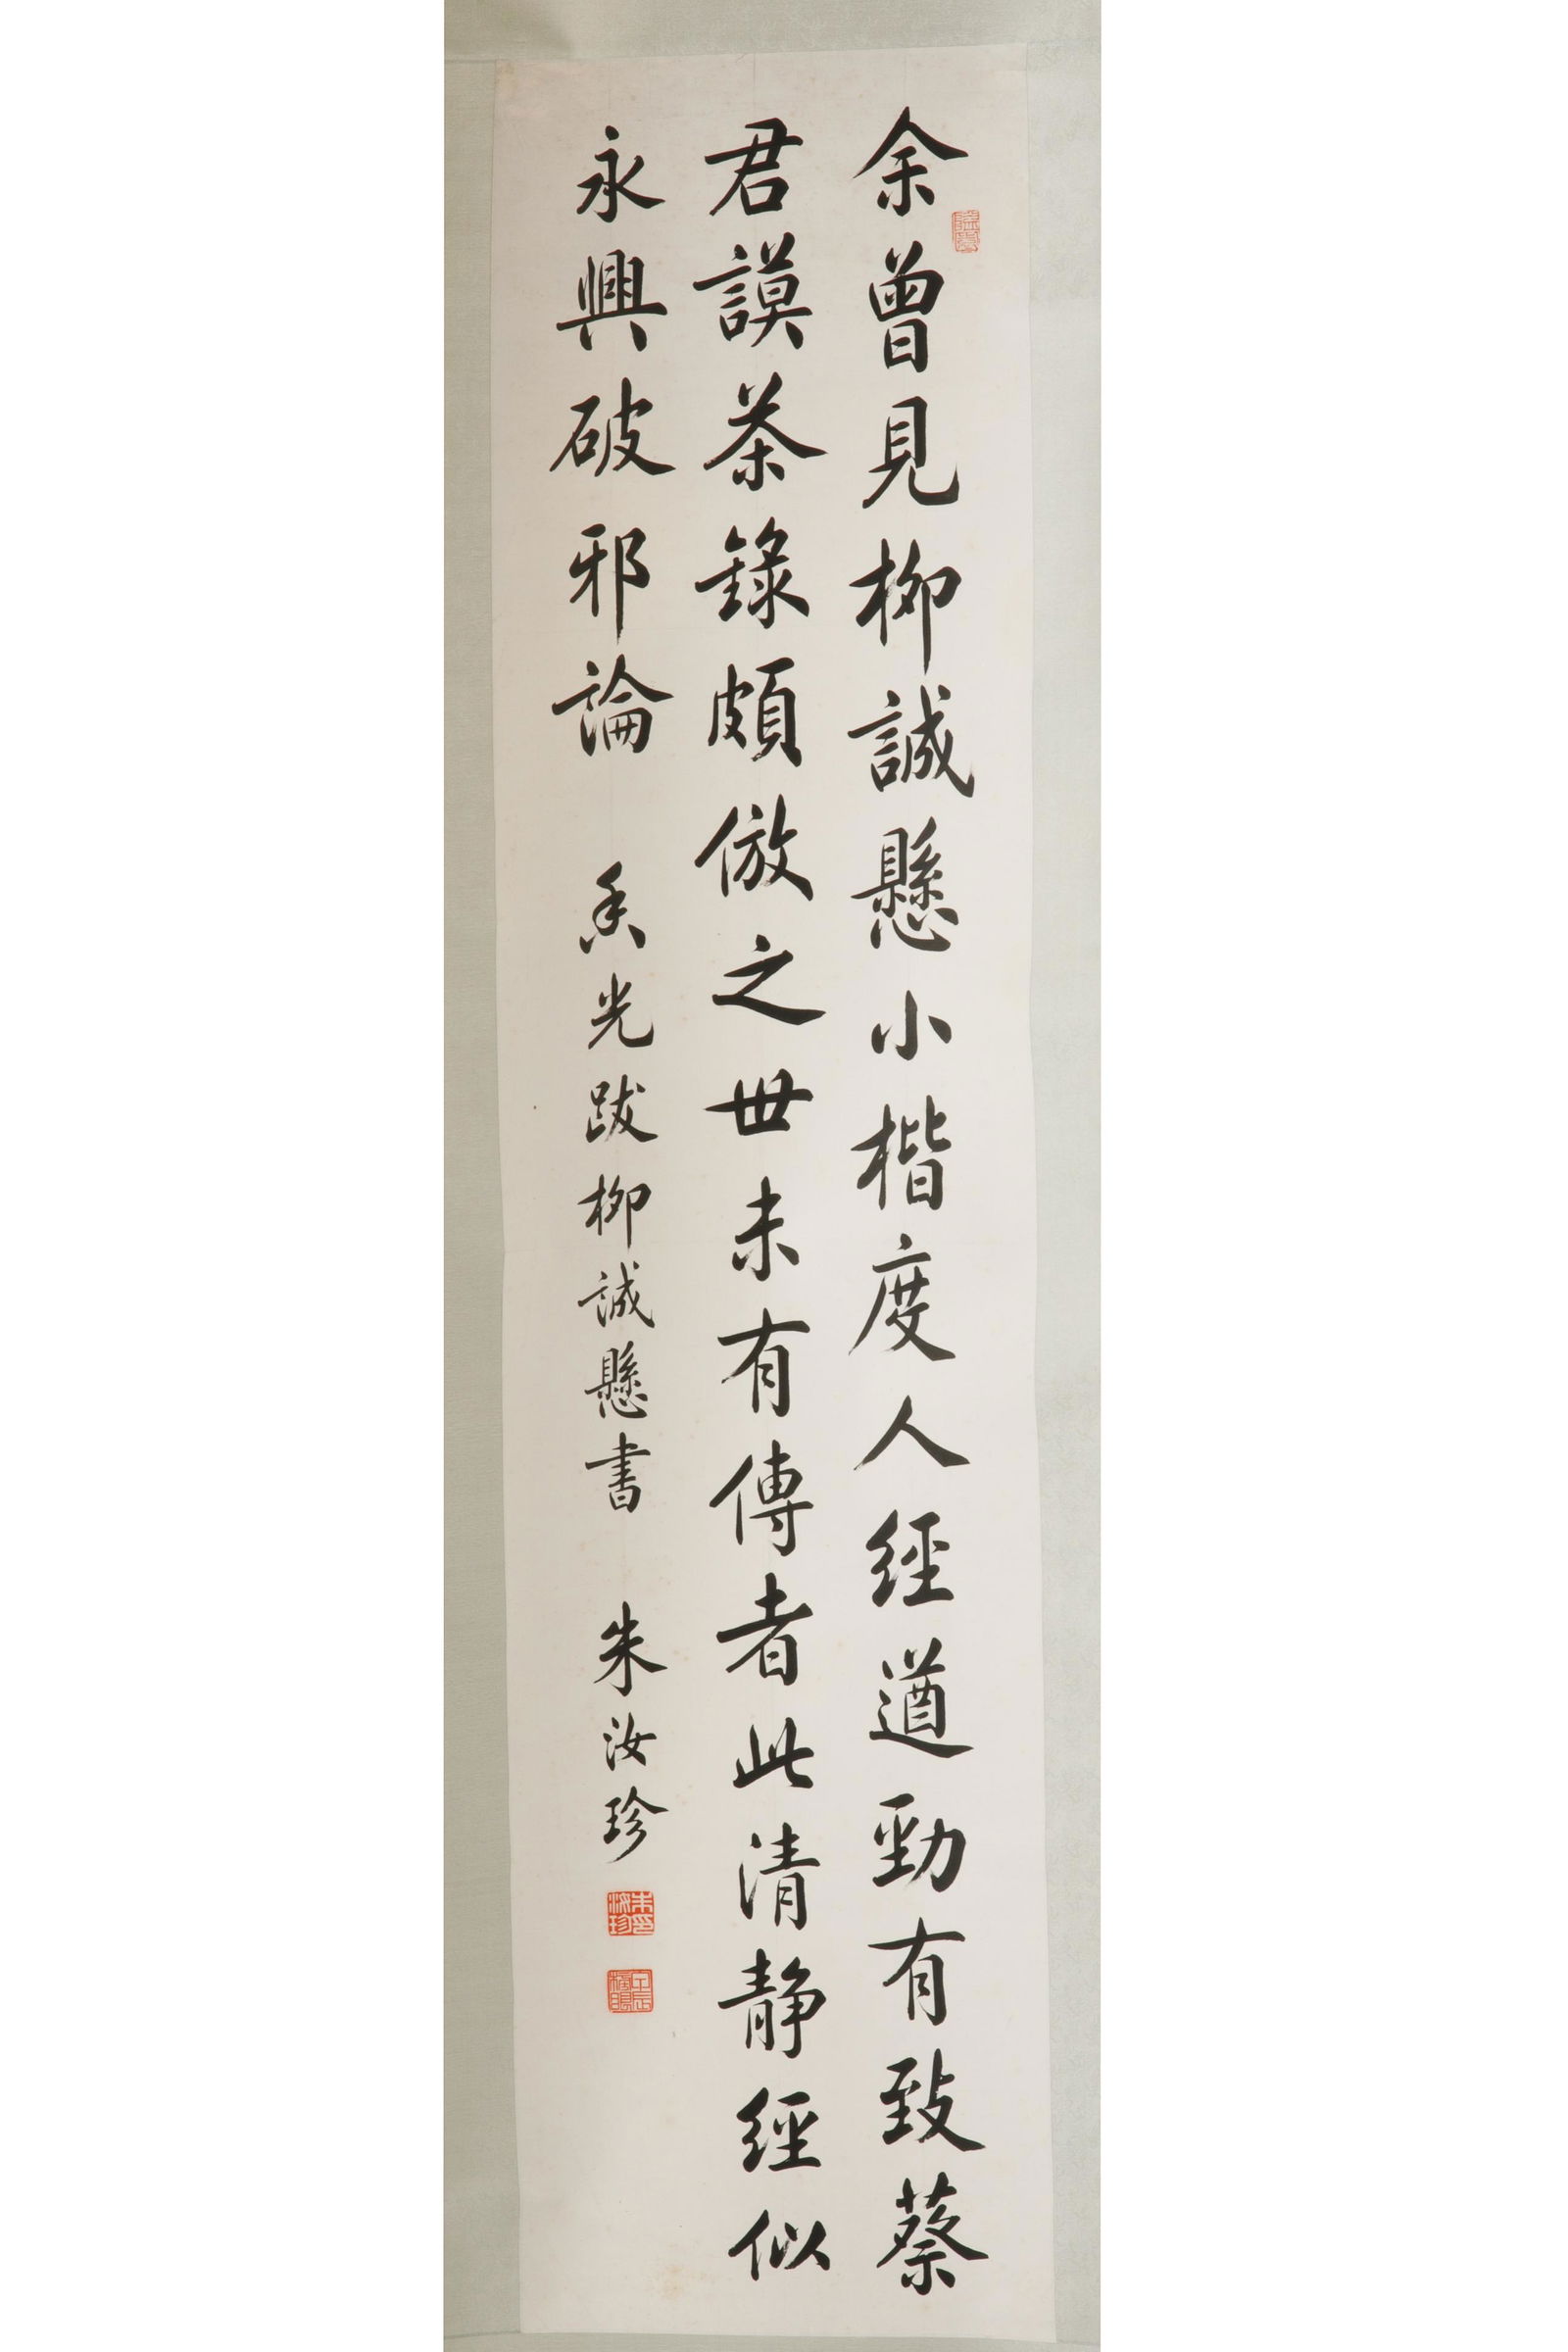 余曾見柳誠懸小楷度人經遒勁有致蔡
君謨茶錄頗倣之世未有傳者此清静經似
永興破邪論 香光跋柳誠懸書 朱汝珍
朱印汝珍